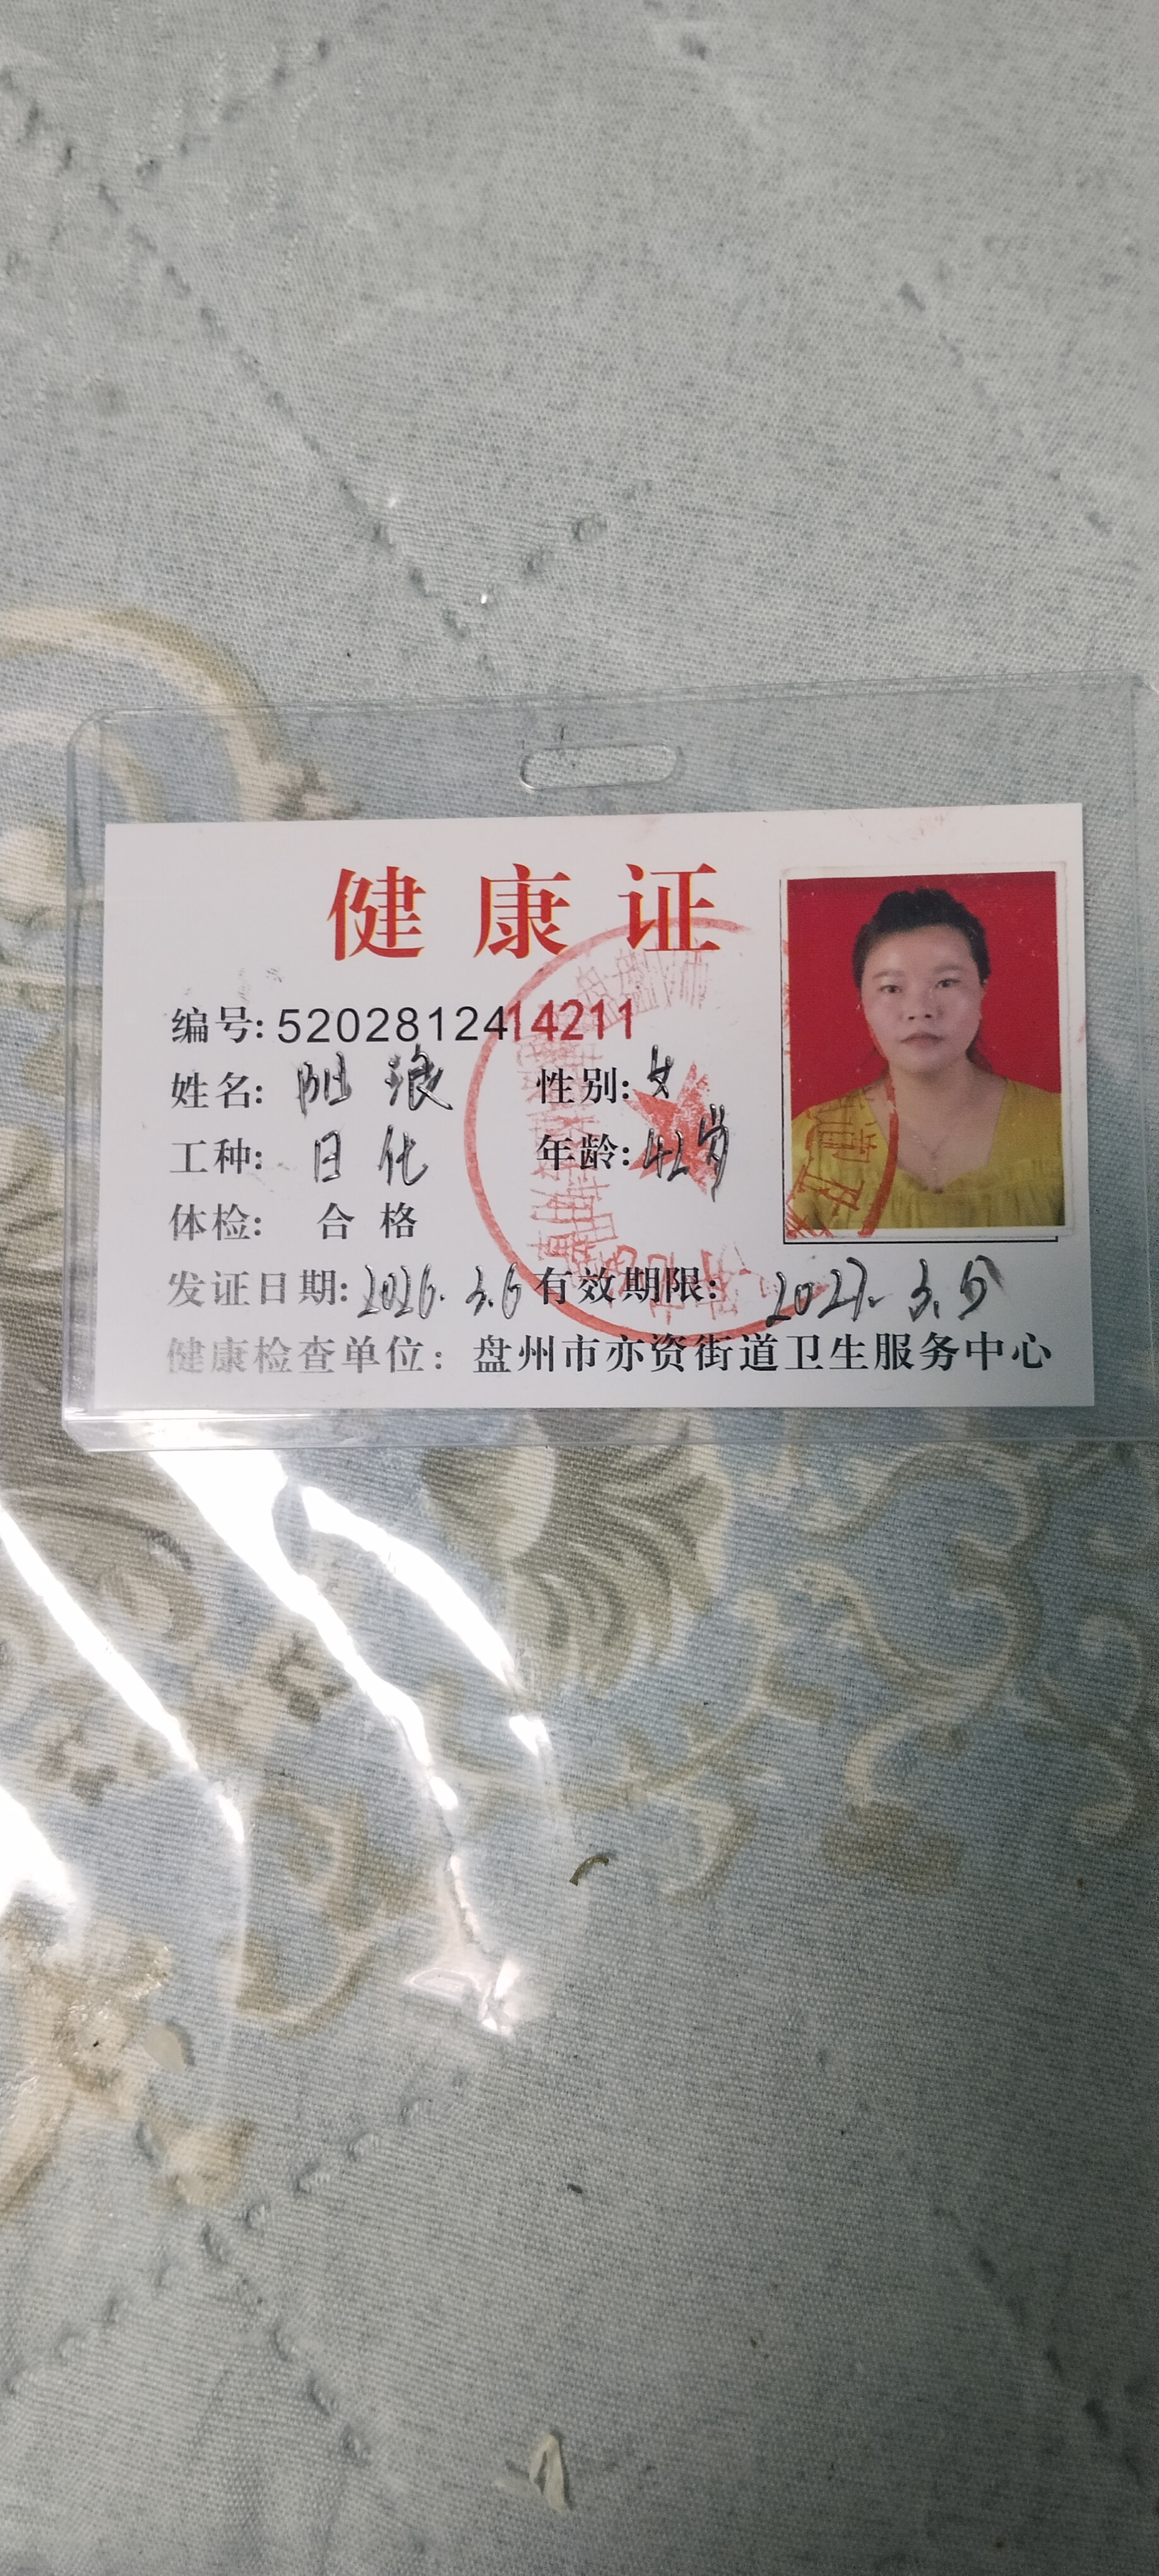 健康证
编号: 5202812414211
姓名: 性别: 女
工种: 日化 年龄: 42岁
体检: 合格
发证日期: 2026.3.6 有效期限: 2027.3.5
健康检查单位: 盘州市亦资街道卫生服务中心